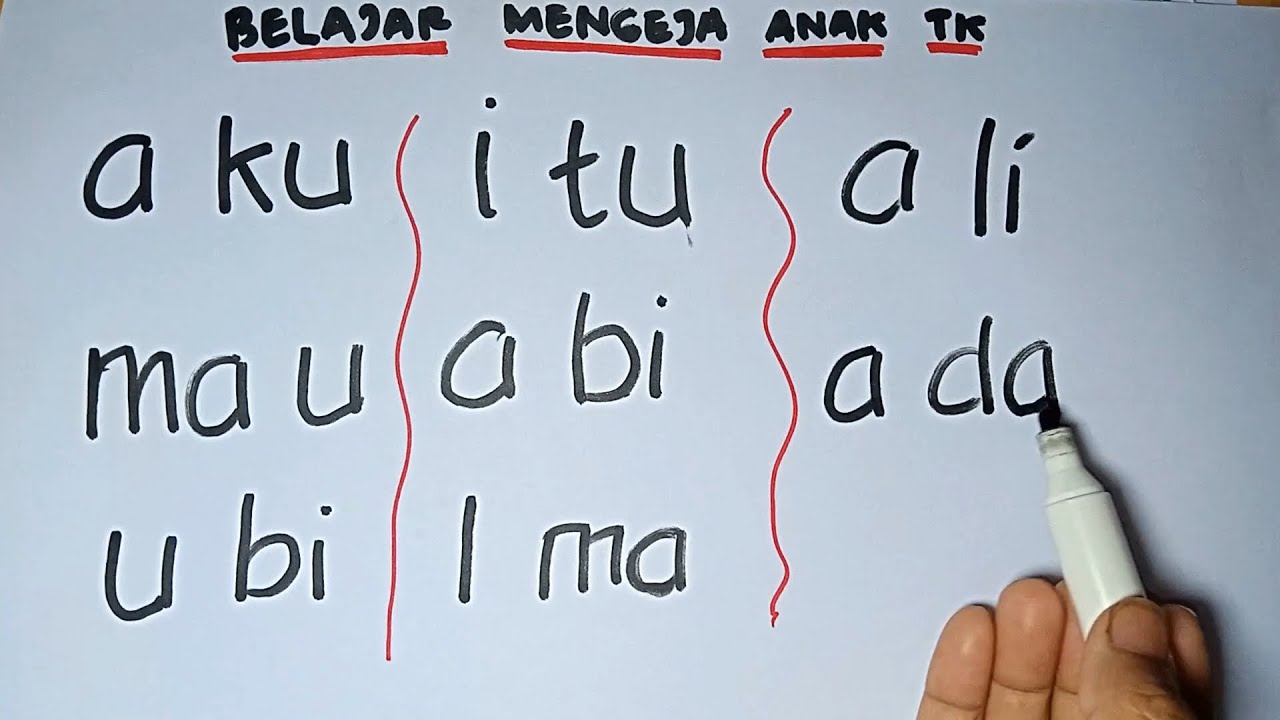 BELAJAR MENGEJA ANAK TK
a ku
ma u
u bi
i tu
a bi
I ma
a li
a da